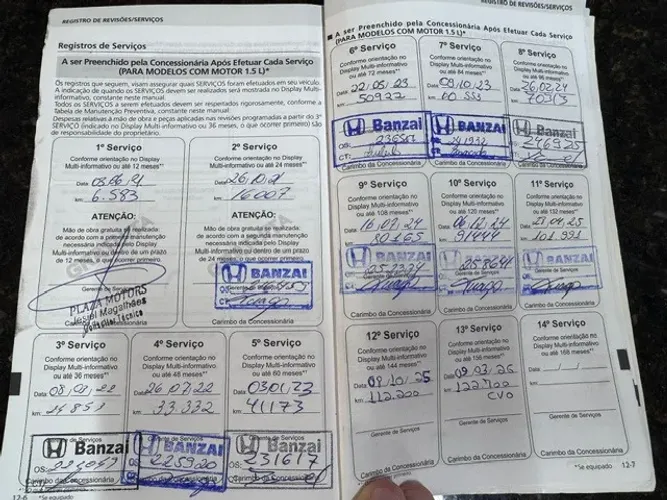 REGISTRO DE REVISÕES/SERVIÇOS
Registros de Serviço
A ser Preenchido pela Concessionária Após Efetuar Cada Serviço
(PARA MODELOS COM MOTOR 1.5 L)*
Os registros que seguem, visam assegurar quais SERVIÇOS foram efetuados em seu veículo.
A indicação de quando os SERVIÇOS devem ser realizados será mostrada no Display Multi-
informativo, constante neste manual.
Todos os SERVIÇOS a serem efetuados devem ser respeitados rigorosamente, conforme a
Tabela de Manutenção Preventiva, constante neste manual.
Despesas relativas à mão de obra e peças aplicadas nas revisões programadas a partir do 3º
SERVIÇO (indicado no Display Multi-informativo ou 36 meses, o que ocorrer primeiro) são
de responsabilidade do proprietário.
1º Serviço
Conforme orientação no Display
Multi-informativo ou até 12 meses**
Data
km: 6.583
ATENÇÃO:
Mão de obra gratuita se realizada
de acordo com a primeira manutenção
necessária indicada pelo Display
Multi-informativo ou dentro de um prazo
de 12 meses, o que ocorrer primeiro.
PLAZA MOTORS
Jesiel Magalhães
Consultor Técnico
Carimbo da Concessionária
2º Serviço
Conforme orientação no Display
Multi-informativo ou até 24 meses**
Data 26.10.21
km: 16007
ATENÇÃO:
Mão de obra gratuita se realizada
de acordo com a segunda manutenção
necessária indicada pelo Display
Multi-informativo ou dentro de um prazo
de 24 meses, o que ocorrer primeiro.
BANZAI
Carimbo da Concessionária
3º Serviço
Conforme orientação no
Display Multi-informativo
ou até 36 meses**
Data
km: 24853
Gerente de Serviços
Banzai
OS:
Carimbo da Concessionária
4º Serviço
Conforme orientação no
Display Multi-informativo
ou até 48 meses**
Data 26.07.22
km: 33.332
Gerente de Serviços
BANZAI
OS: 225920
Carimbo da Concessionária
5º Serviço
Conforme orientação no
Display Multi-informativo
ou até 60 meses**
Data 03.01.23
km: 41173
Gerente de Serviços
Banzai
OS: 231617
Carimbo da Concessionária
12-6
*Se equipado
REGISTRO DE REVISÕES/SERVIÇOS
A ser Preenchido pela Concessionária Após Efetuar Cada Serviço
(PARA MODELOS COM MOTOR 1.5 L)*
6º Serviço
Conforme orientação no
Display Multi-informativo
ou até 72 meses**
Data 22.05.23
km: 50977
Banzai
CT:
Carimbo da Concessionária
7º Serviço
Conforme orientação no
Display Multi-informativo
ou até 84 meses**
Data 09.10.23
km: 60.553
BANZAI
OS: 241932
Carimbo da Concessionária
8º Serviço
Conforme orientação no
Display Multi-informativo
ou até 96 meses**
Data 26.02.24
BANZAI
246925
Carimbo da Concessionária
9º Serviço
Conforme orientação no
Display Multi-informativo
ou até 108 meses**
Data 16.07.24
km: 80165
BANZAI
Carimbo da Concessionária
10º Serviço
Conforme orientação no
Display Multi-informativo
ou até 120 meses**
Data 06.12.24
km: 91444
BANZAI
258641
Carimbo da Concessionária
11º Serviço
Conforme orientação no
Display Multi-informativo
ou até 132 meses**
Data
km: 101.991
Gerente de Serviços
BANZAI
Carimbo da Concessionária
12º Serviço
Conforme orientação no
Display Multi-informativo
ou até 144 meses**
Data 09/10/25
km: 112.200
Gerente de Serviços
Carimbo da Concessionária
13º Serviço
Conforme orientação no
Display Multi-informativo
ou até 156 meses**
Data 09.03.26
km: 122.700
CVO
Gerente de Serviços
Carimbo da Concessionária
14º Serviço
Conforme orientação no
Display Multi-informativo
ou até 168 meses**
Data
km:
Gerente de Serviços
Carimbo da Concessionária
*Se equipado
12-7